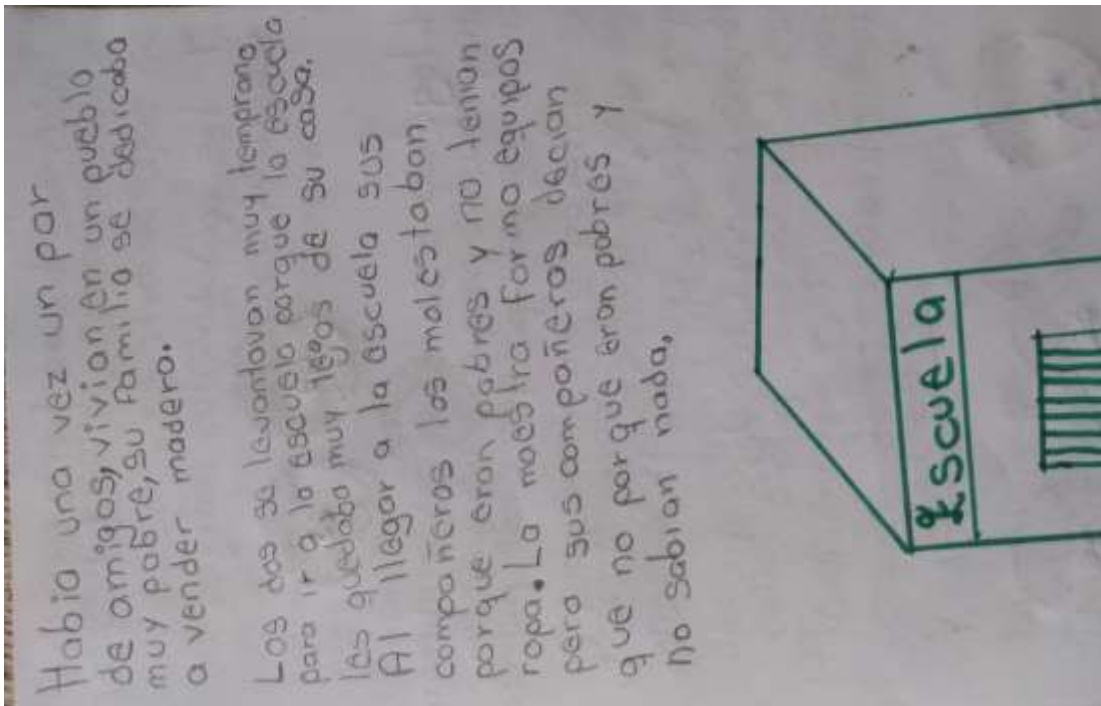 Habia una vez un par
de amigos, vivian en un pueblo
muy pobre, su familia se dedicaba
a vender madera.
Los dos se levantavan muy temprano
para ir a la escuela porque la escuela
les quedaba muy legos de su casa.
Al llegar a la escuela sus
compañeros los molestaban
porque eran pobres y no tenian
ropa. La maestra formo equipos
pero sus compañeros decian
que no por que eran pobres y
no sabian nada.
Escuela